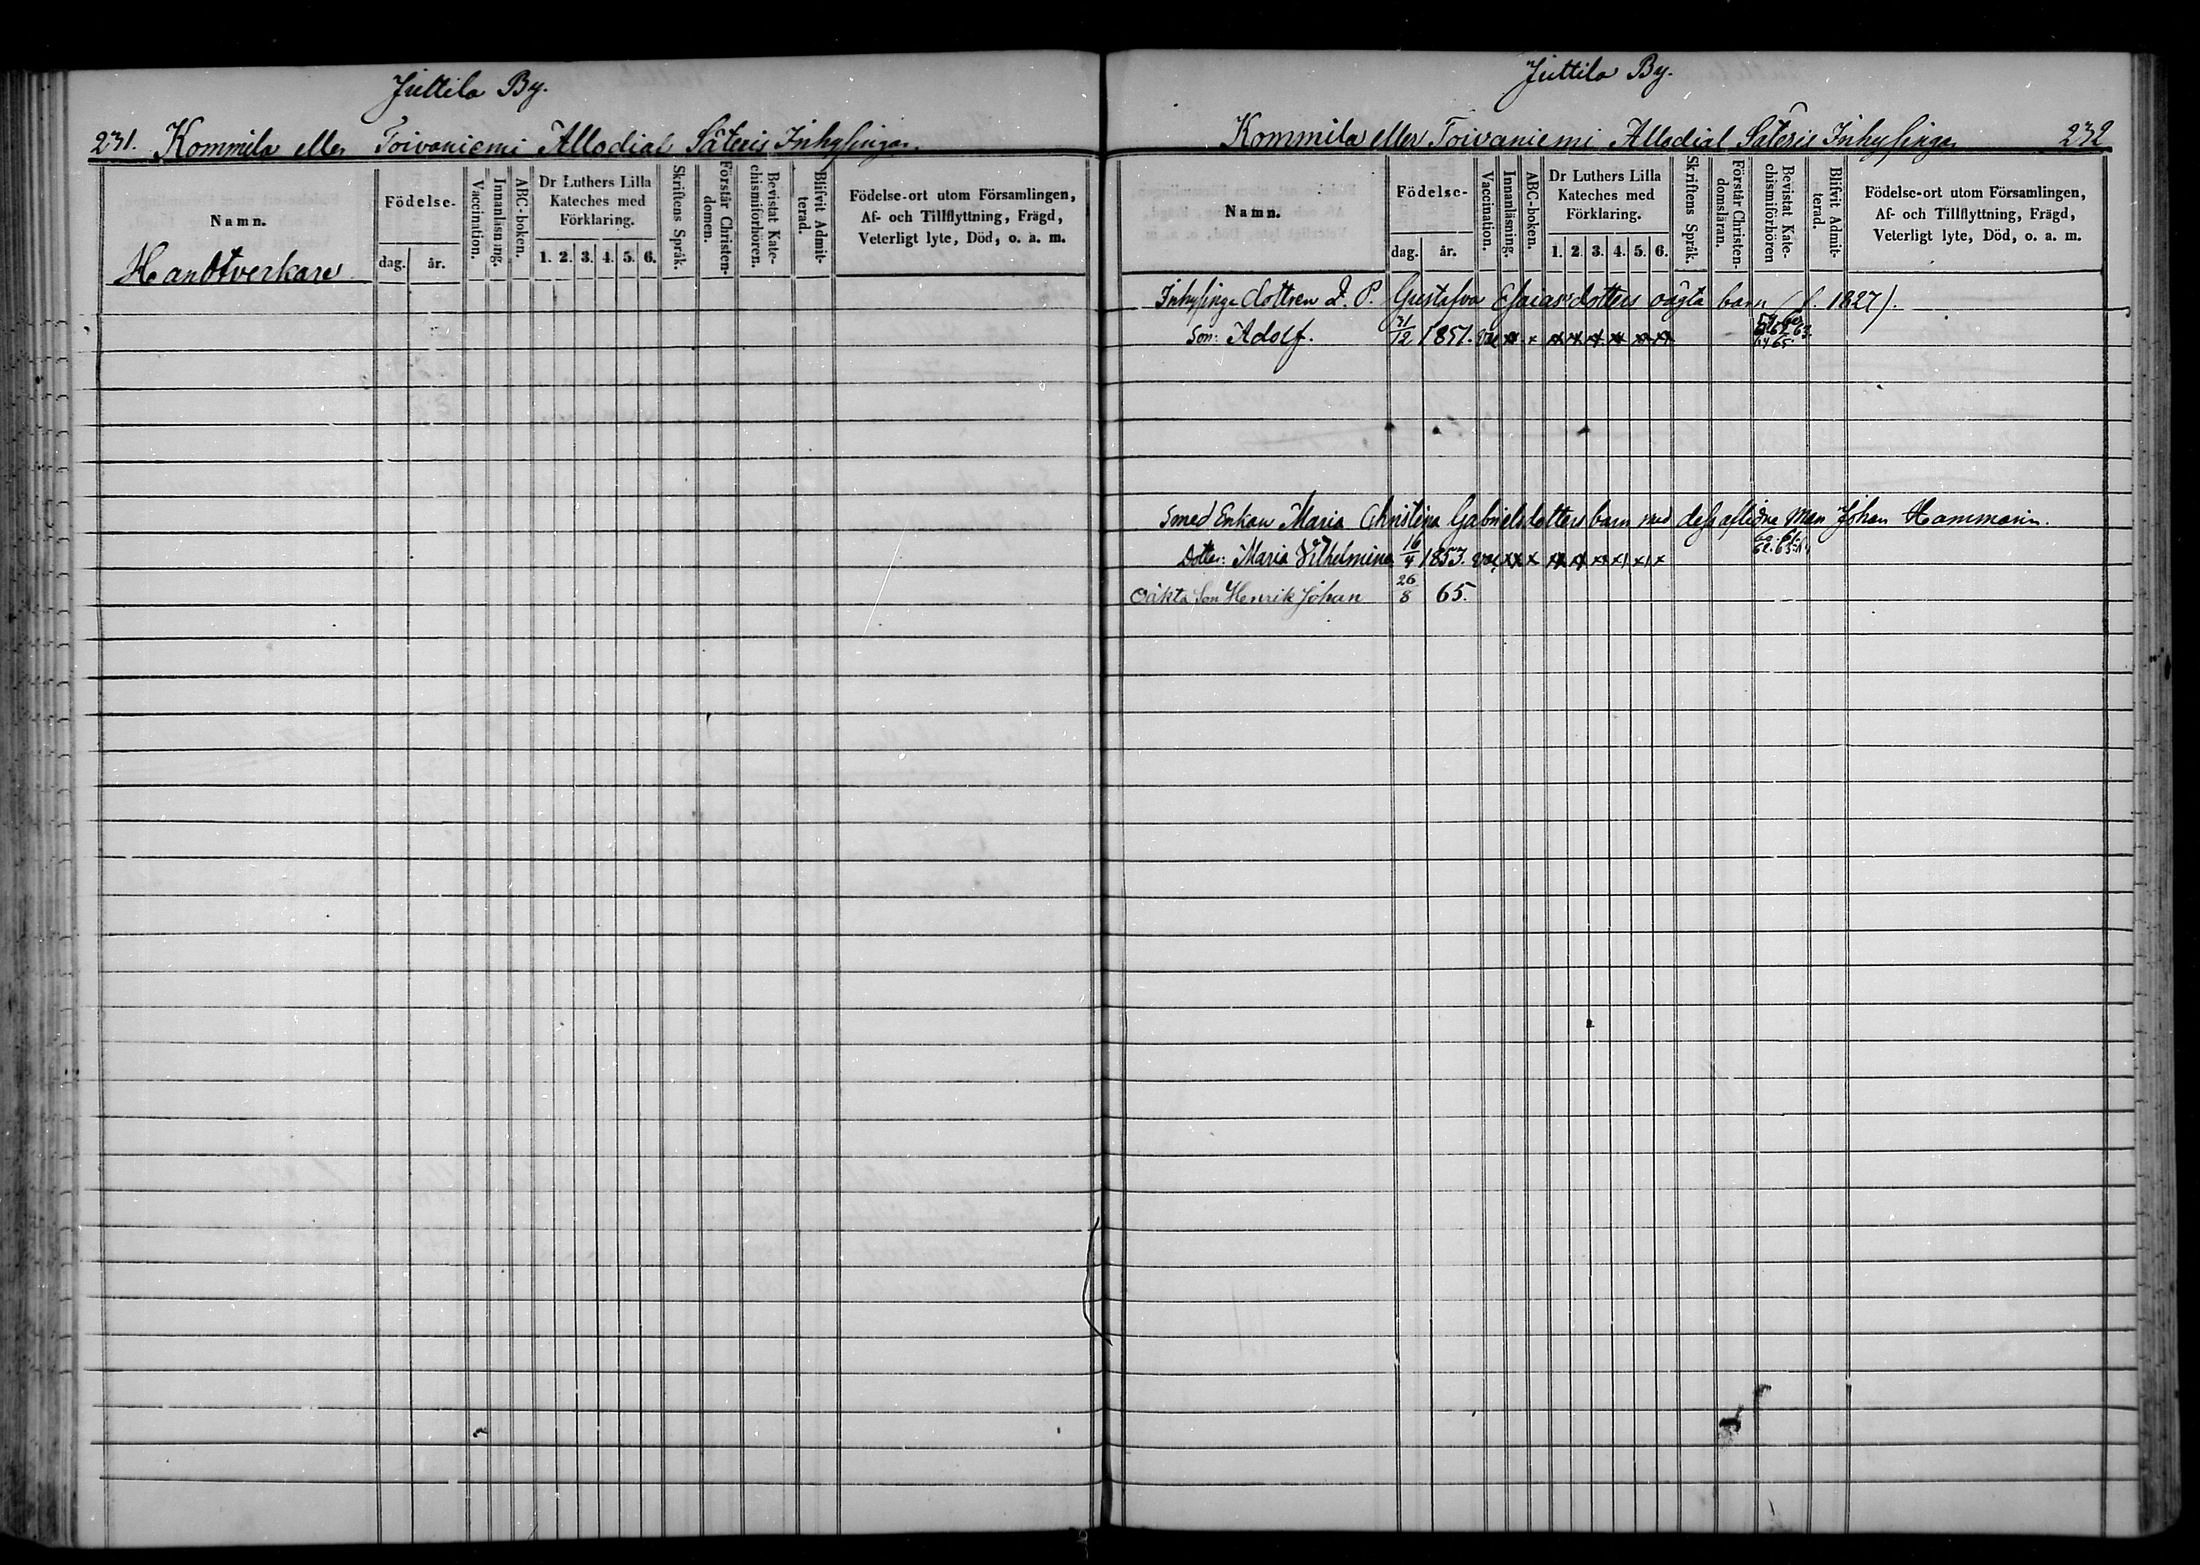 Juttila By.
231. Kommila eller Toivaniemi Allodial Säteris Inhysingar.
Namn.
Födelse-
dag. år.
Vaccination.
Innanläsning.
ABC-boken.
Dr Luthers Lilla
Kateches med
Förklaring.
1. 2. 3. 4. 5. 6.
Skriftens Språk.
Förstår Christen-
domen.
Bevistat Kate-
chismiförhören.
Blifvit Admit-
terad.
Födelse-ort utom Församlingen,
Af- och Tillflyttning, Frägd,
Veterligt lyte, Död, o. a. m.
Handtverkare
Juttila By.
Kommila eller Toivaniemi Allodial Säteris Inhysingar 232
Namn.
Födelse-
dag. år.
Vaccination.
Innanläsning.
ABC-boken.
Dr Luthers Lilla
Kateches med
Förklaring.
1. 2. 3. 4. 5. 6.
Skriftens Språk.
Förstår Christen-
domsläran.
Bevistat Kate-
chismiförhören
Blifvit Admit-
terad.
Födelse-ort utom Församlingen,
Af- och Tillflyttning, Frägd,
Veterligt lyte, Död, o. a. m.
Inhysinge dottren Q. P. Gustafva Esaiasdotters oägta barn (f. 1827).
Son: Adolf. 31/12 1851. vac x x x x x x x x
64 65
Smed Enkan Maria Christina Gabrielsdotters barn med dess aflidne Man Johan Hammarin.
Dotter: Maria Vilhelmina 16/4 1853. vac xx x x x x x x x
Oäkta Son Henrik Johan 26/8 65.